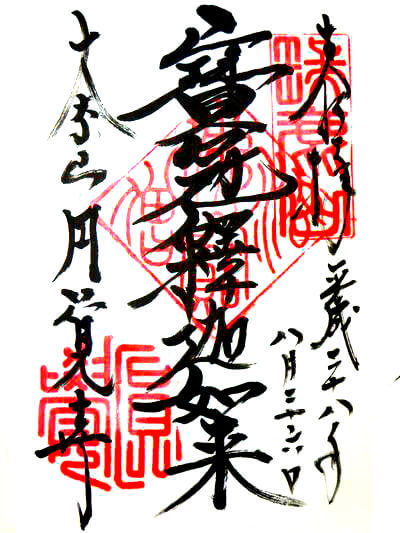 奉拝 平成二十八年
八月二十六日
寳冠釋迦如来
大本山円覚寺